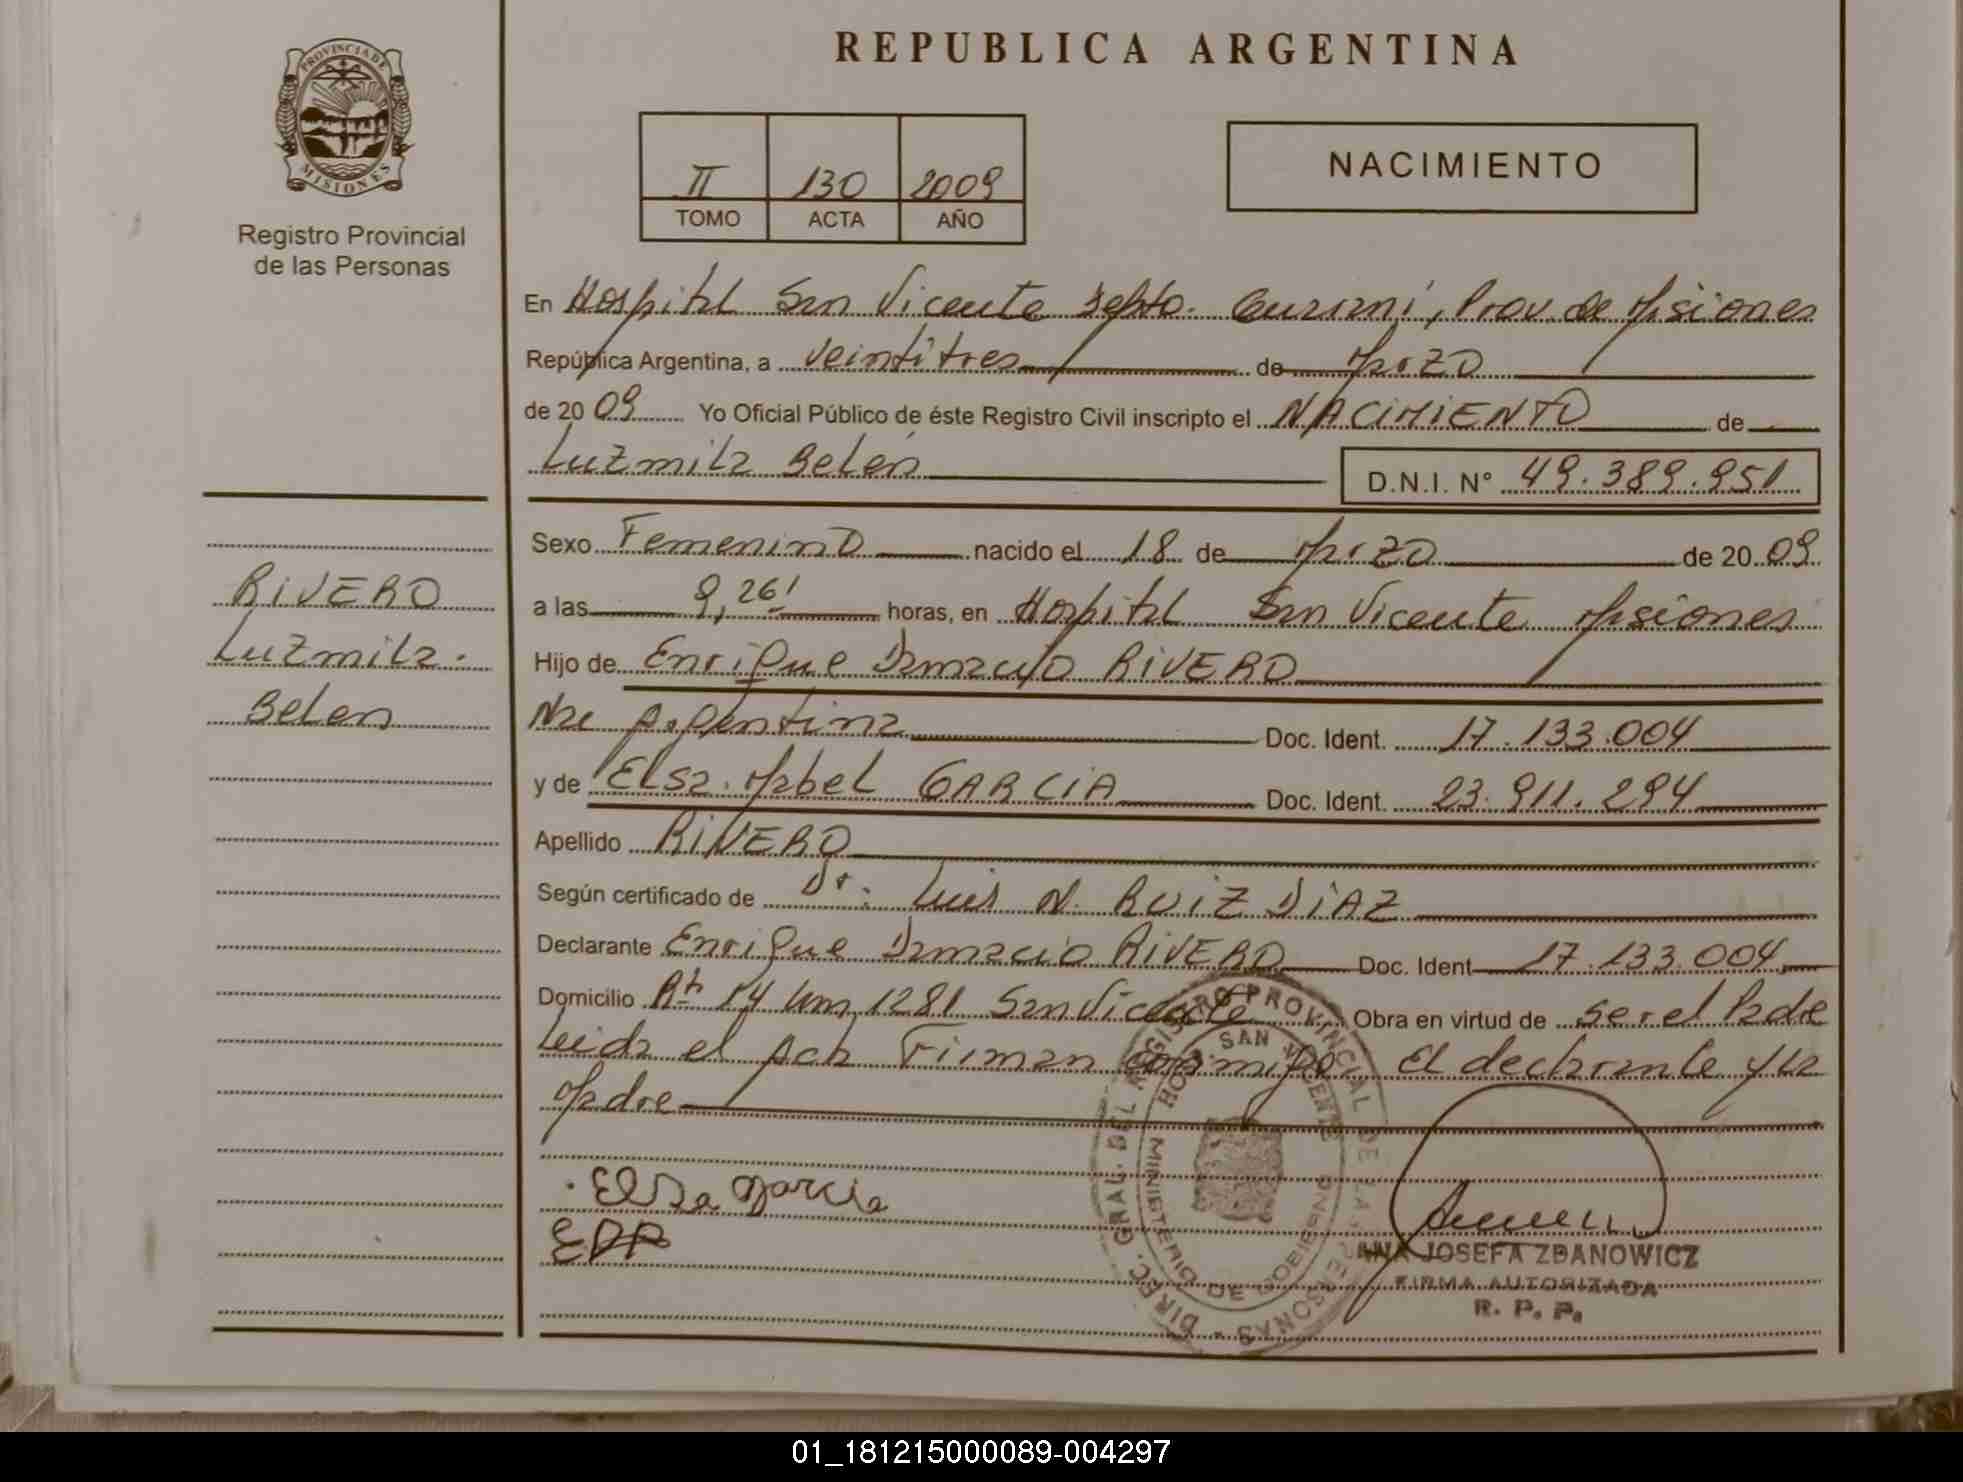 REPUBLICA ARGENTINA
PROVINCIA DE MISIONES
Registro Provincial
de las Personas
II 130 2009
TOMO ACTA AÑO
NACIMIENTO
En Hospital San Vicente Depto. Guarani, Prov. de Misiones
República Argentina, a veintitres de Marzo
de 2009 Yo Oficial Público de éste Registro Civil inscripto el NACIMIENTO de
Luzmila Belén
D.N.I. N° 49.389.951
Sexo Femenino nacido el 18 de Marzo de 2009
a las 9,26' horas, en Hospital San Vicente Misiones
Hijo de Enrique Damacio RIVERO
Nac Argentina Doc. Ident. 17.133.004
y de Elsa Mabel GARCIA Doc. Ident. 23.911.294
Apellido RIVERO
Según certificado de Dr. Luis N. RUIZ DIAZ
Declarante Enrique Damacio RIVERO Doc. Ident 17.133.004
Domicilio Rta 14 Km 1281 San Vicente Obra en virtud de ser el Padre
Leida el Acta Firman conmigo El declarante y la
Madre
RIVERO
Luzmila
Belen
Elsa Garcia
DIREC. GRAL. DEL REGISTRO PROVINCIAL DE LAS PERSONAS
HOSP. SAN VICENTE
MINISTERIO DE GOBIERNO
ANA JOSEFA ZDANOWICZ
FIRMA AUTORIZADA
R. P. P.
01_181215000089-004297